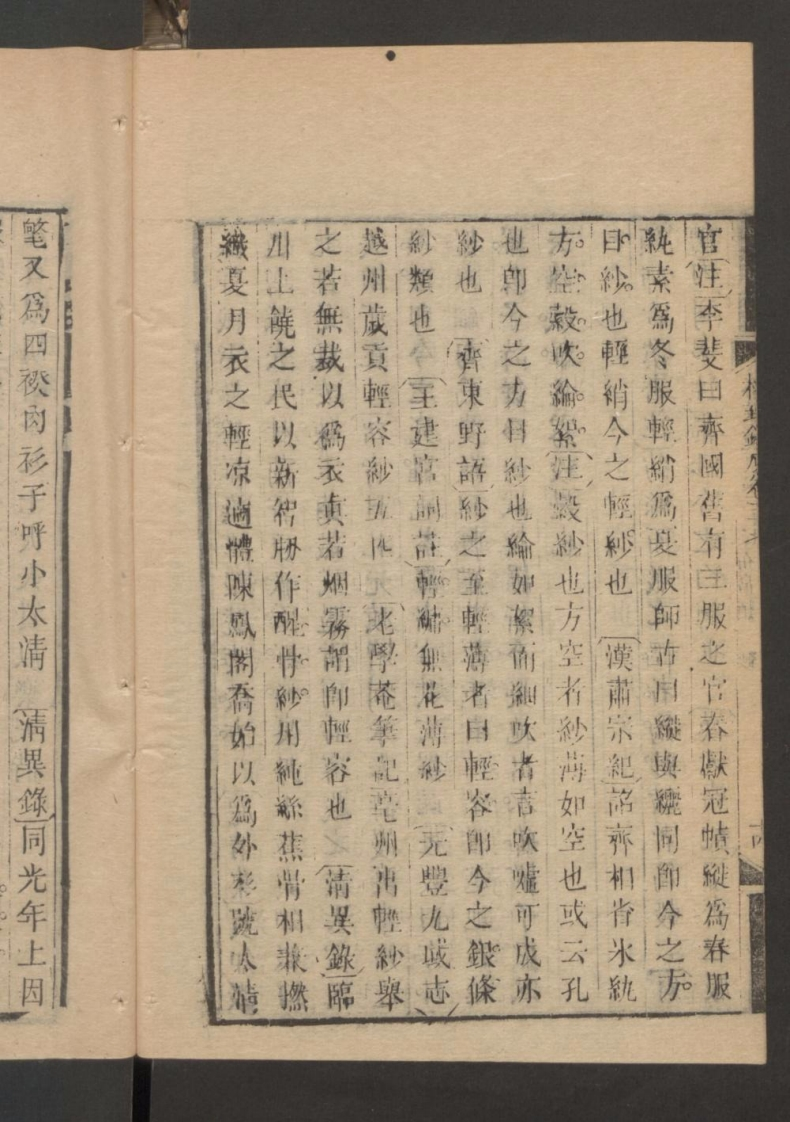 官〔注〕李斐曰齊國舊有三服之官春獻冠幘縰爲春服
紈素爲冬服輕綃爲夏服師古曰縰與纚同卽今之方
目紗也輕綃今之輕紗也〔漢肅宗紀〕詔齊相省氷紈
方空縠吹綸絮〔注〕縠紗也方空者紗薄如空也或云孔
也卽今之方目紗也綸如絮而細吹者言吹噓可成亦
紗也〔齊東野語〕紗之至輕薄者曰輕容卽今之銀條
紗類也〔王建宮詞註〕輕容無花薄紗〔元豐九域志〕
越州歲貢輕容紗五匹〔老學菴筆記〕亳州出輕紗舉
之若無裁以爲衣眞若烟霧謂卽輕容也〔清異錄〕臨
川上饒之民以新智剏作醒骨紗用純絲蕉骨相兼撚
織夏月衣之輕凉適體陳鳳閣喬始以爲外衫號太清
氅又爲四䙆肉衫子呼小太清〔清異錄〕同光年上因